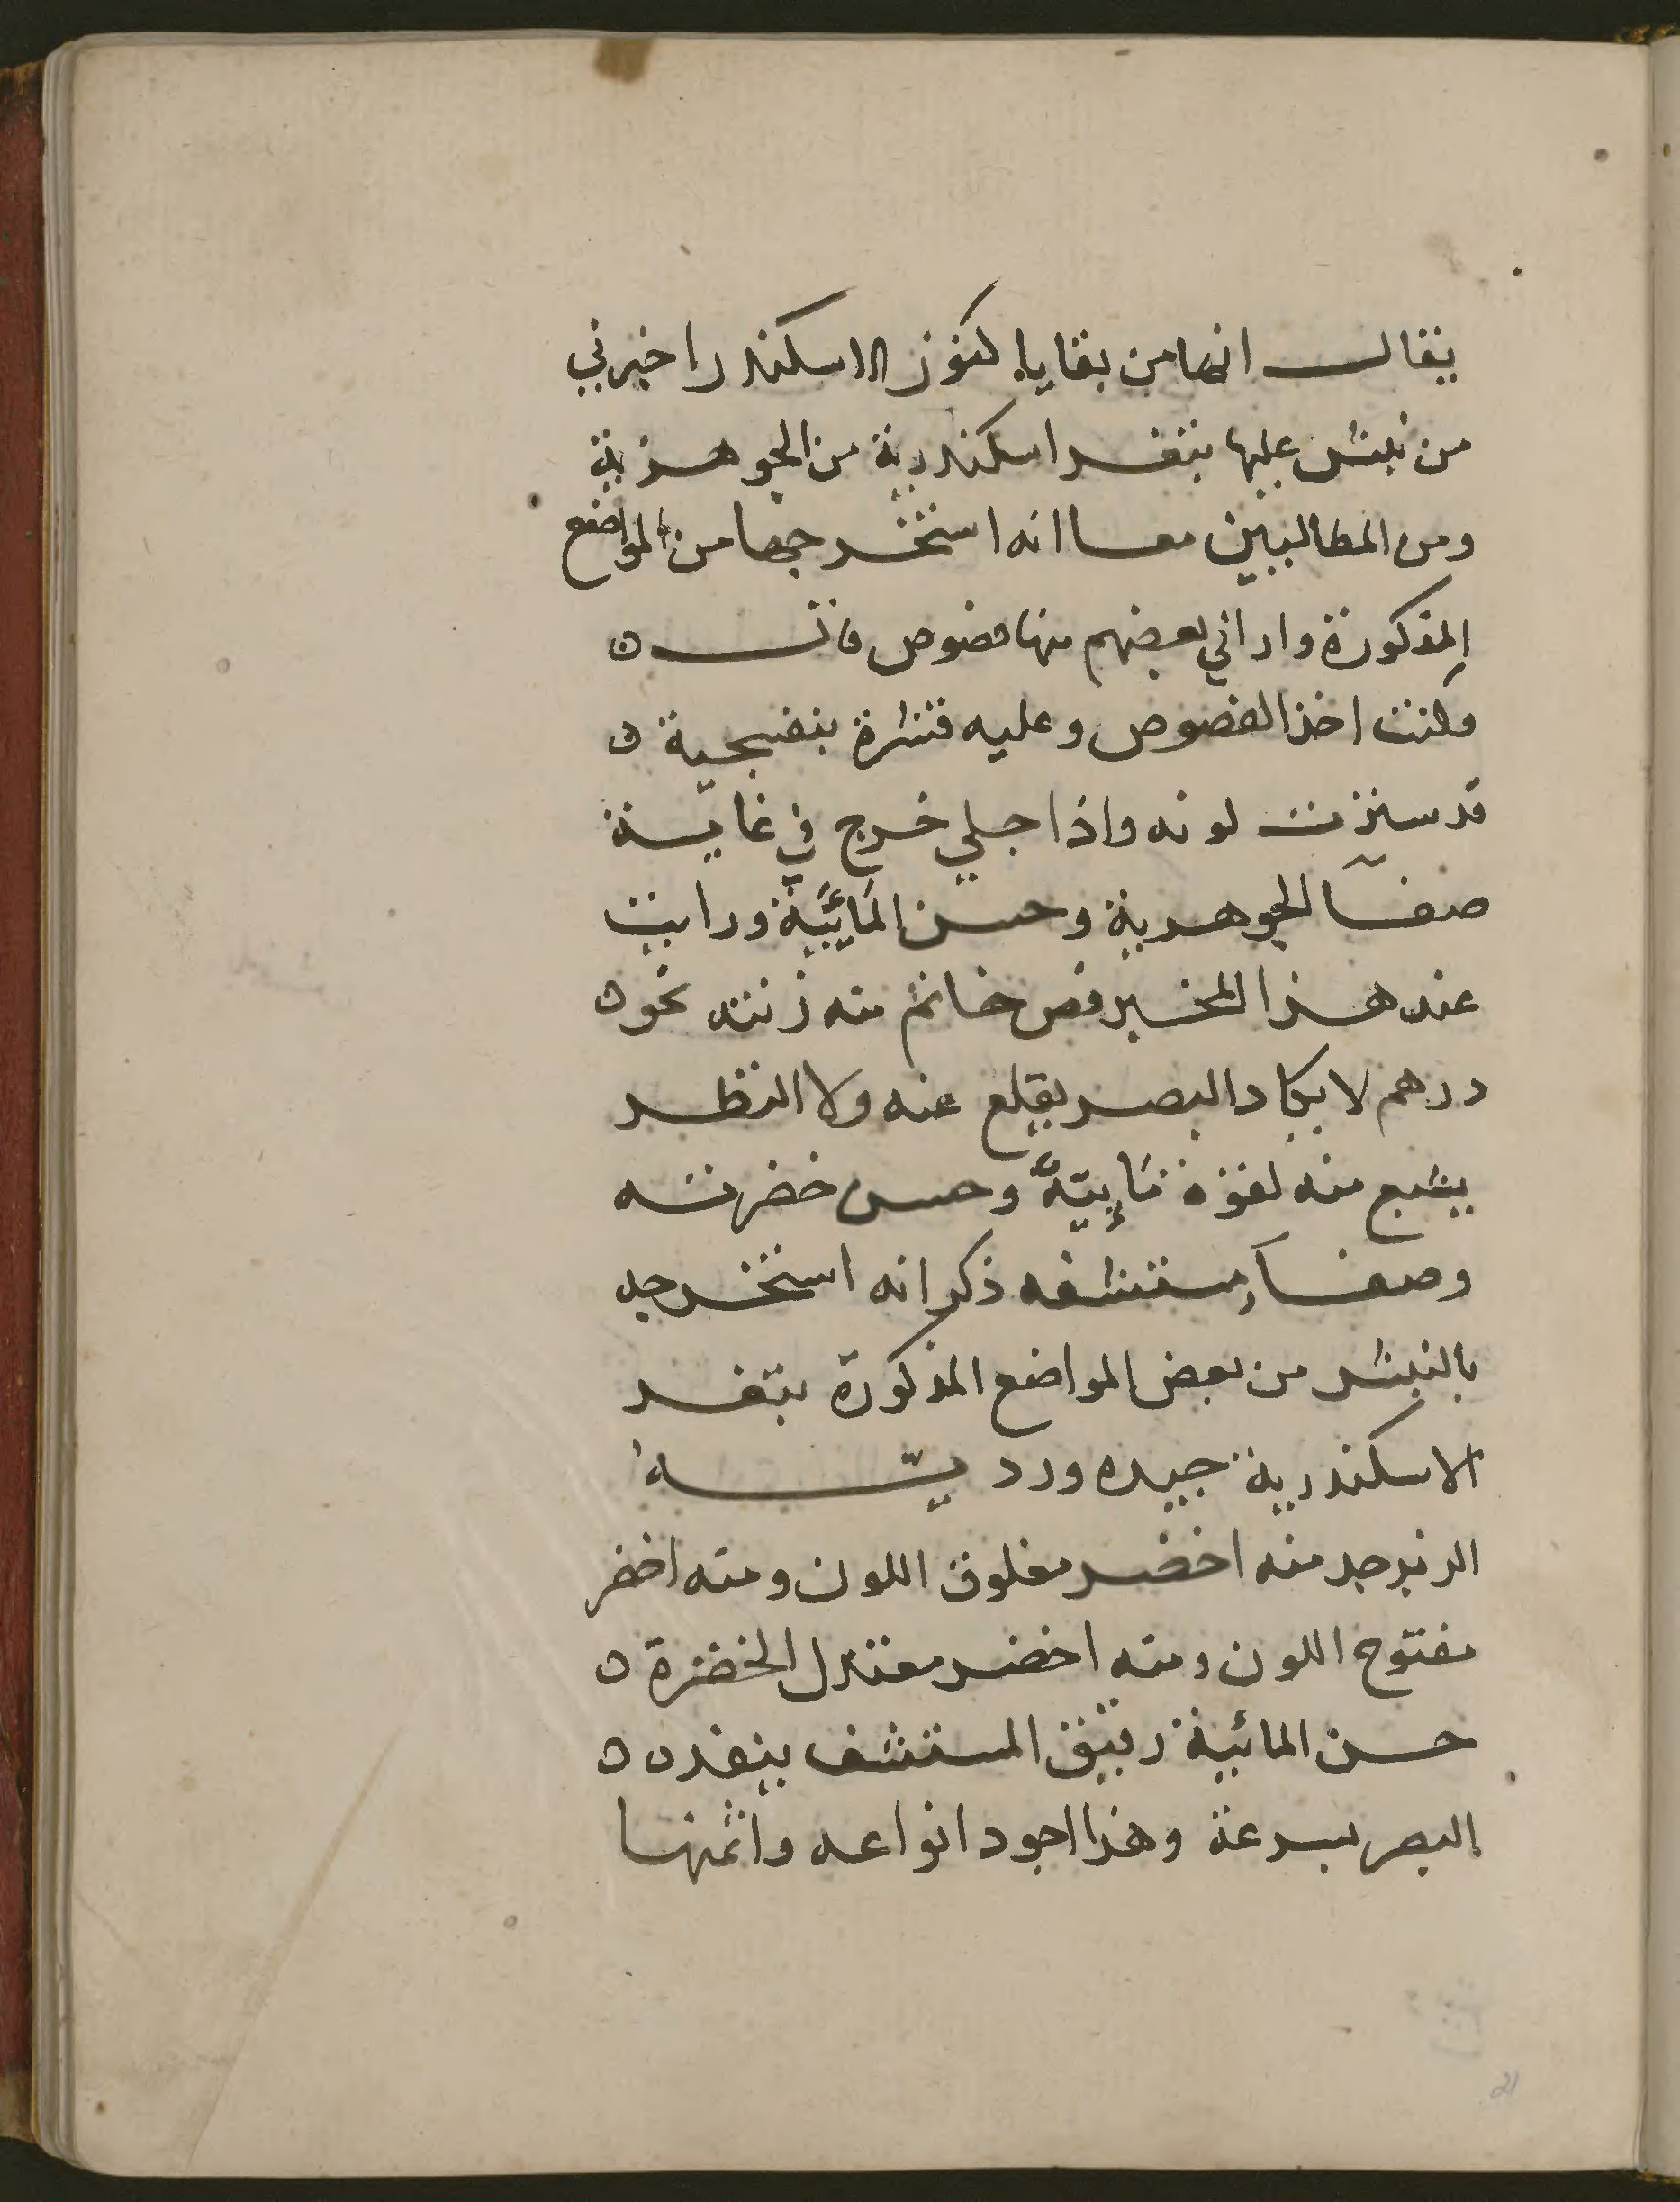 يقال انها من بقايا كنوز الاسكندر اخبرني
من نبش عليها بثغر اسكندرية من الجوهرية
ومن المطالبيين معا انه استخرجها من المواضع
المذكورة واراني بعضهم منها فصوص فانٮ ه
وكنت اخذ الفصوص وعليه قشرة بنفسجية ه
قد سترت لونه واذا جلي خرج في غاية
صفآ الجوهرية وحسن المَائيَّة ورايت
عند هذا المخبر فص خاتم منه زنته نحو ه
درهم لا يكاد البصر يقلع عنه ولا النظر
يشبع منه لقوة مَايِيتهٌ وحسن خضرته
وصفآ مستشفه ذكر انه استخرجه
بالنبش من بعض المواضع المذكورة بثغر
الاسكندرية جيده ورديّه
الزبرجد منه اخضر مغلوق اللون ومنه اخضر
مفتوح اللون ومنه اخضر معتدل الخضرة ه
حسن المائية رقيق المستشف ينفده ه
البصر بسرعة وهذا اجود انواعه واثمنها